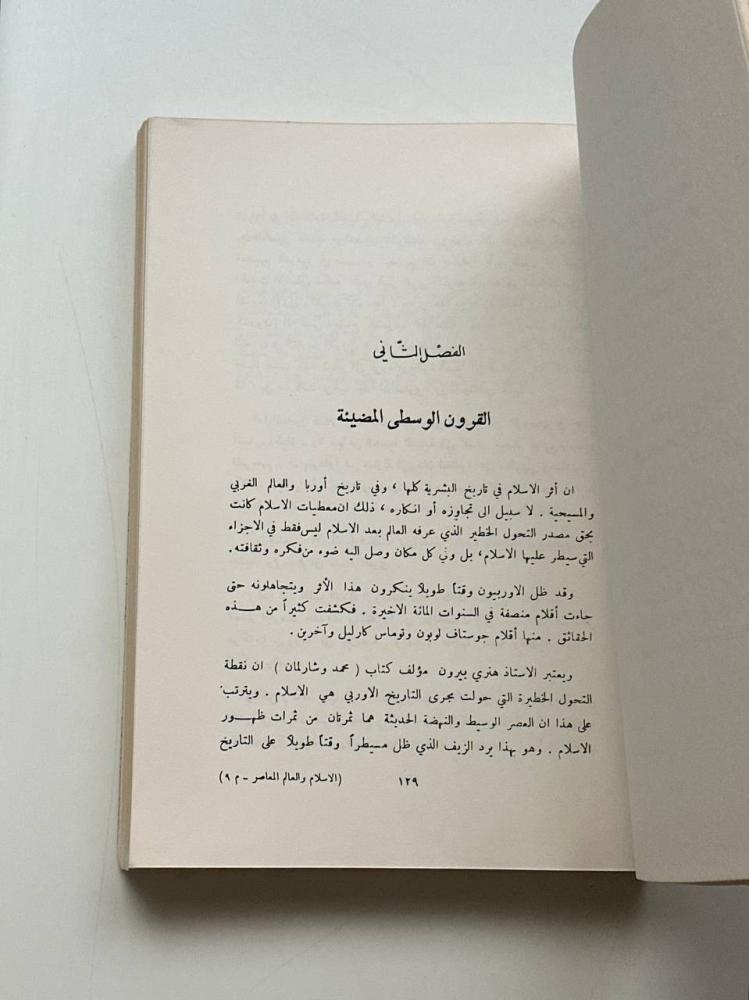 الفصل الثاني
القرون الوسطى المضيئة
ان أثر الاسلام في تاريخ البشرية كلها ، وفي تاريخ أوربا والعالم الغربي
والمسيحية . لا سبيل الى تجاوزه أو انكاره ، ذلك ان معطيات الاسلام كانت
بحق مصدر التحول الخطير الذي عرفه العالم بعد الاسلام ليس فقط في الاجزاء
التي سيطر عليها الاسلام ، بل وفي كل مكان وصل اليه ضوء من فكره وثقافته .
وقد ظل الاوربيون وقتاً طويلاً ينكرون هذا الأثر ويتجاهلونه حتى
جاءت أقلام منصفة في السنوات المائة الاخيرة . فكشفت كثيراً من هذه
الحقائق . منها أقلام جوستاف لوبون وتوماس كارليل وآخرين .
ويعتبر الاستاذ هنري بيرون مؤلف كتاب ( محمد وشارلمان ) ان نقطة
التحول الخطيرة التي حولت مجرى التاريخ الاوربي هي الاسلام . ويترتب
على هذا ان العصر الوسيط والنهضة الحديثة هما ثمرتان من ثمرات ظهور
الاسلام . وهو بهذا يرد الزيف الذي ظل مسيطراً وقتاً طويلاً على التاريخ
١٢٩ (الاسلام والعالم المعاصر - م ٩)